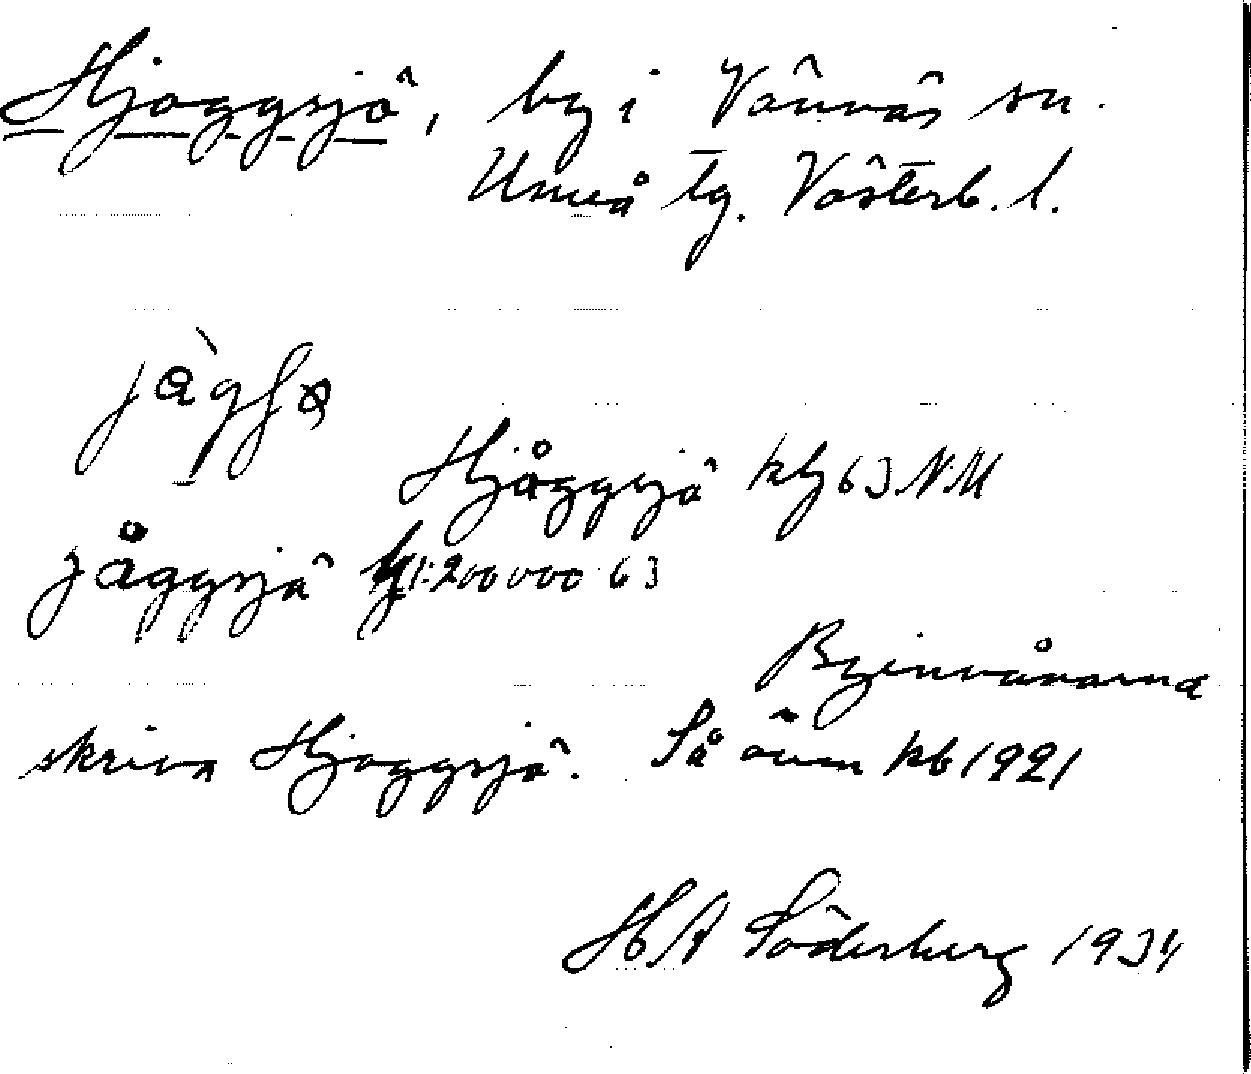 Hjoggsjö, by i Vännäs sn.
Umeå tg. Västerb. l.
Hjåggsjö 63 NM
Jåggsjö 1:200000 63
Byinvånarna
skriva Hjoggsjö. Så även kb 1921
HA Söderberg 1934